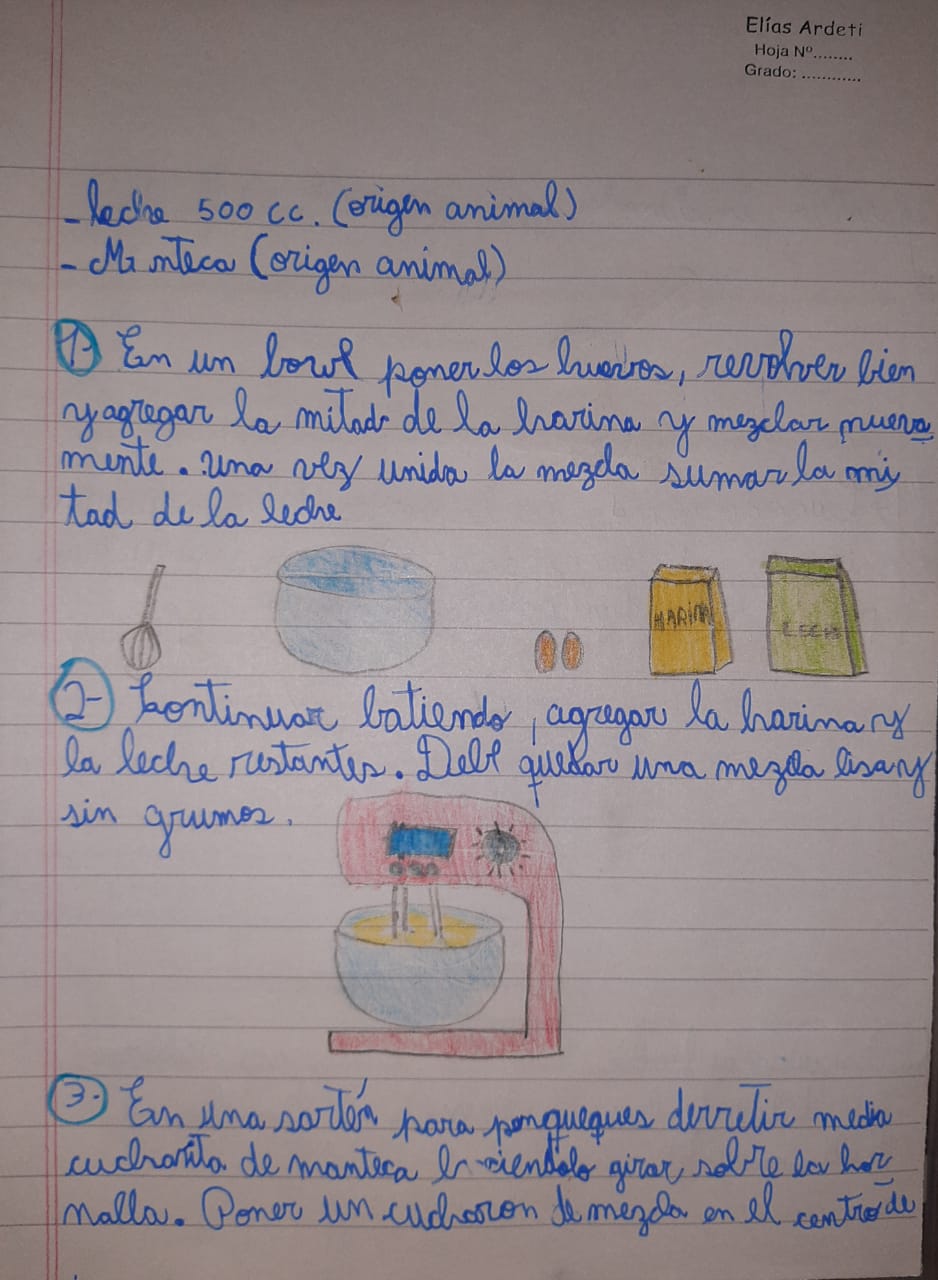 Elías Ardeti
Hoja Nº........
Grado: ............
- leche 500 cc. (origen animal)
- Manteca (origen animal)
1- En un bowl poner los huevos, revolver bien
y agregar la mitad de la harina y mezclar nueva
mente. una vez unida la mezcla sumar la mi
tad de la leche
HARINA
LECHE
2- Continuar batiendo, agregar la harina y
la leche restantes. Debe quedar una mezcla lisa y
sin grumos.
3- En una sartén para panqueques derretir media
cucharita de manteca haciendolo girar sobre la hor
nalla. Poner un cucharon de mezcla en el centro de